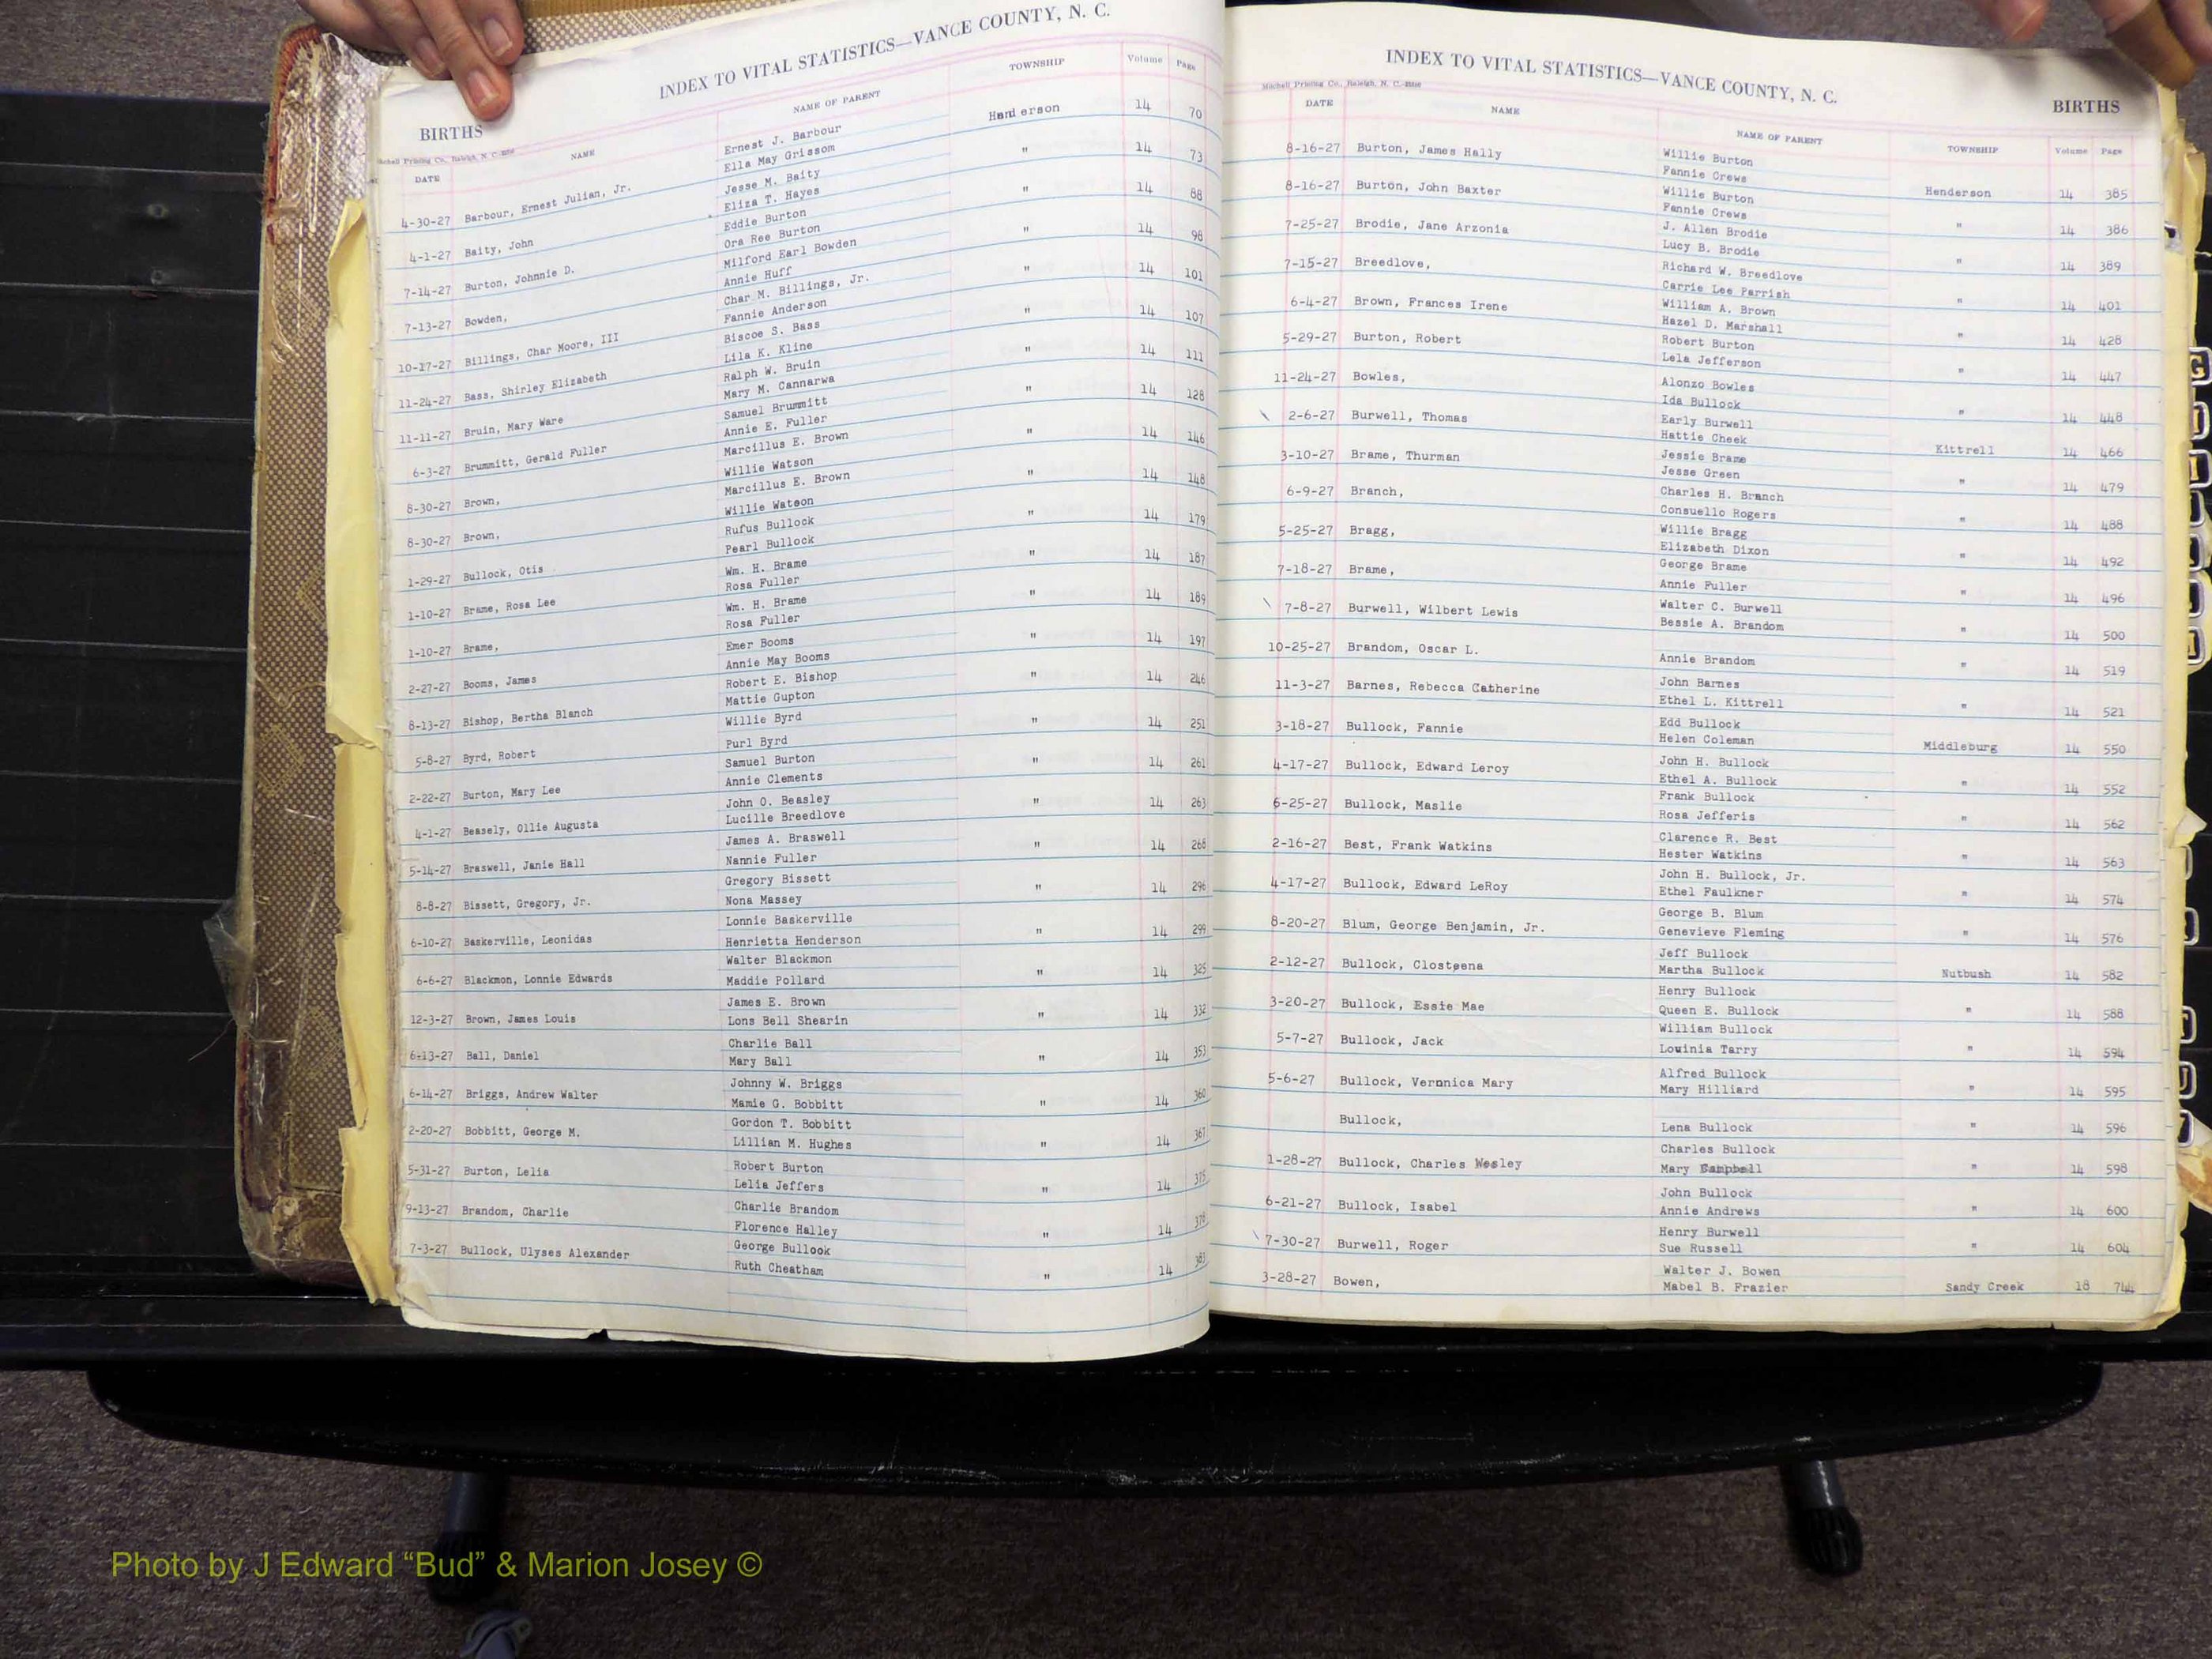 INDEX TO VITAL STATISTICS—VANCE COUNTY, N. C.
BIRTHS
Mitchell Printing Co., Raleigh, N. C.
DATE NAME NAME OF PARENT TOWNSHIP Volume Page
4-30-27 Barbour, Ernest Julian, Jr. Ernest J. Barbour Henderson 14 70
Ella May Grissom
4-1-27 Baity, John Jesse M. Baity " 14 73
Eliza T. Hayes
7-14-27 Burton, Johnnie D. Eddie Burton " 14 88
Ora Ree Burton
7-13-27 Bowden, Milford Earl Bowden " 14 98
Annie Huff
10-17-27 Billings, Char Moore, III Char M. Billings, Jr. " 14 101
Fannie Anderson
11-24-27 Bass, Shirley Elizabeth Biscoe S. Bass " 14 107
Lila K. Kline
11-11-27 Bruin, Mary Ware Ralph W. Bruin " 14 111
Mary M. Cannarwa
6-3-27 Brummitt, Gerald Fuller Samuel Brummitt " 14 128
Annie E. Fuller
8-30-27 Brown, Marcillus E. Brown " 14 146
Willie Watson
8-30-27 Brown, Marcillus E. Brown " 14 148
Willie Watson
1-29-27 Bullock, Otis Rufus Bullock " 14 179
Pearl Bullock
1-10-27 Brame, Rosa Lee Wm. H. Brame " 14 187
Rosa Fuller
1-10-27 Brame, Wm. H. Brame " 14 189
Rosa Fuller
2-27-27 Booms, James Emer Booms " 14 197
Annie May Booms
8-13-27 Bishop, Bertha Blanch Robert E. Bishop " 14 246
Mattie Gupton
5-8-27 Byrd, Robert Willie Byrd " 14 251
Purl Byrd
2-22-27 Burton, Mary Lee Samuel Burton " 14 261
Annie Clements
4-1-27 Beasely, Ollie Augusta John O. Beasley " 14 263
Lucille Breedlove
5-14-27 Braswell, Janie Hall James A. Braswell " 14 268
Nannie Fuller
8-8-27 Bissett, Gregory, Jr. Gregory Bissett " 14 296
Nona Massey
6-10-27 Baskerville, Leonidas Lonnie Baskerville " 14 299
Henrietta Henderson
6-6-27 Blackmon, Lonnie Edwards Walter Blackmon " 14 325
Maddie Pollard
12-3-27 Brown, James Louis James E. Brown " 14 332
Lons Bell Shearin
6-13-27 Ball, Daniel Charlie Ball " 14 353
Mary Ball
6-14-27 Briggs, Andrew Walter Johnny W. Briggs " 14 360
Mamie G. Bobbitt
2-20-27 Bobbitt, George M. Gordon T. Bobbitt " 14 367
Lillian M. Hughes
5-31-27 Burton, Lelia Robert Burton " 14 375
Lelia Jeffers
9-13-27 Brandom, Charlie Charlie Brandom " 14
Florence Halley
7-3-27 Bullock, Ulyses Alexander George Bullook " 14 383
Ruth Cheatham
INDEX TO VITAL STATISTICS—VANCE COUNTY, N. C.
BIRTHS
Mitchell Printing Co., Raleigh, N. C.
DATE NAME NAME OF PARENT TOWNSHIP Volume Page
8-16-27 Burton, James Hally Willie Burton Henderson 14 385
Fannie Crews
8-16-27 Burton, John Baxter Willie Burton " 14 386
Fannie Crews
7-25-27 Brodie, Jane Arzonia J. Allen Brodie " 14 389
Lucy B. Brodie
7-15-27 Breedlove, Richard W. Breedlove " 14 401
Carrie Lee Parrish
6-4-27 Brown, Frances Irene William A. Brown " 14 428
Hazel D. Marshall
5-29-27 Burton, Robert Robert Burton " 14 447
Lela Jefferson
11-24-27 Bowles, Alonzo Bowles " 14 448
Ida Bullock
2-6-27 Burwell, Thomas Early Burwell Kittrell 14 466
Hattie Cheek
3-10-27 Brame, Thurman Jessie Brame " 14 479
Jesse Green
6-9-27 Branch, Charles H. Branch " 14 488
Consuello Rogers
5-25-27 Bragg, Willie Bragg " 14 492
Elizabeth Dixon
7-18-27 Brame, George Brame " 14 496
Annie Fuller
7-8-27 Burwell, Wilbert Lewis Walter C. Burwell " 14 500
Bessie A. Brandom
10-25-27 Brandom, Oscar L. Annie Brandom " 14 519
11-3-27 Barnes, Rebecca Catherine John Barnes " 14 521
Ethel L. Kittrell
3-18-27 Bullock, Fannie Edd Bullock Middleburg 14 550
Helen Coleman
4-17-27 Bullock, Edward Leroy John H. Bullock " 14 552
Ethel A. Bullock
6-25-27 Bullock, Maslie Frank Bullock " 14 562
Rosa Jefferis
2-16-27 Best, Frank Watkins Clarence R. Best " 14 563
Hester Watkins
4-17-27 Bullock, Edward LeRoy John H. Bullock, Jr. " 14 574
Ethel Faulkner
8-20-27 Blum, George Benjamin, Jr. George B. Blum " 14 576
Genevieve Fleming
2-12-27 Bullock, Closteena Jeff Bullock Nutbush 14 582
Martha Bullock
3-20-27 Bullock, Essie Mae Henry Bullock " 14 588
Queen E. Bullock
5-7-27 Bullock, Jack William Bullock " 14 594
Louinia Tarry
5-6-27 Bullock, Veronica Mary Alfred Bullock " 14 595
Mary Hilliard
Bullock, Lena Bullock " 14 596
1-28-27 Bullock, Charles Wesley Charles Bullock " 14 598
Mary Campbell
6-21-27 Bullock, Isabel John Bullock " 14 600
Annie Andrews
7-30-27 Burwell, Roger Henry Burwell " 14 604
Sue Russell
3-28-27 Bowen, Walter J. Bowen Sandy Creek 18 744
Mabel B. Frazier
Photo by J Edward “Bud” & Marion Josey ©